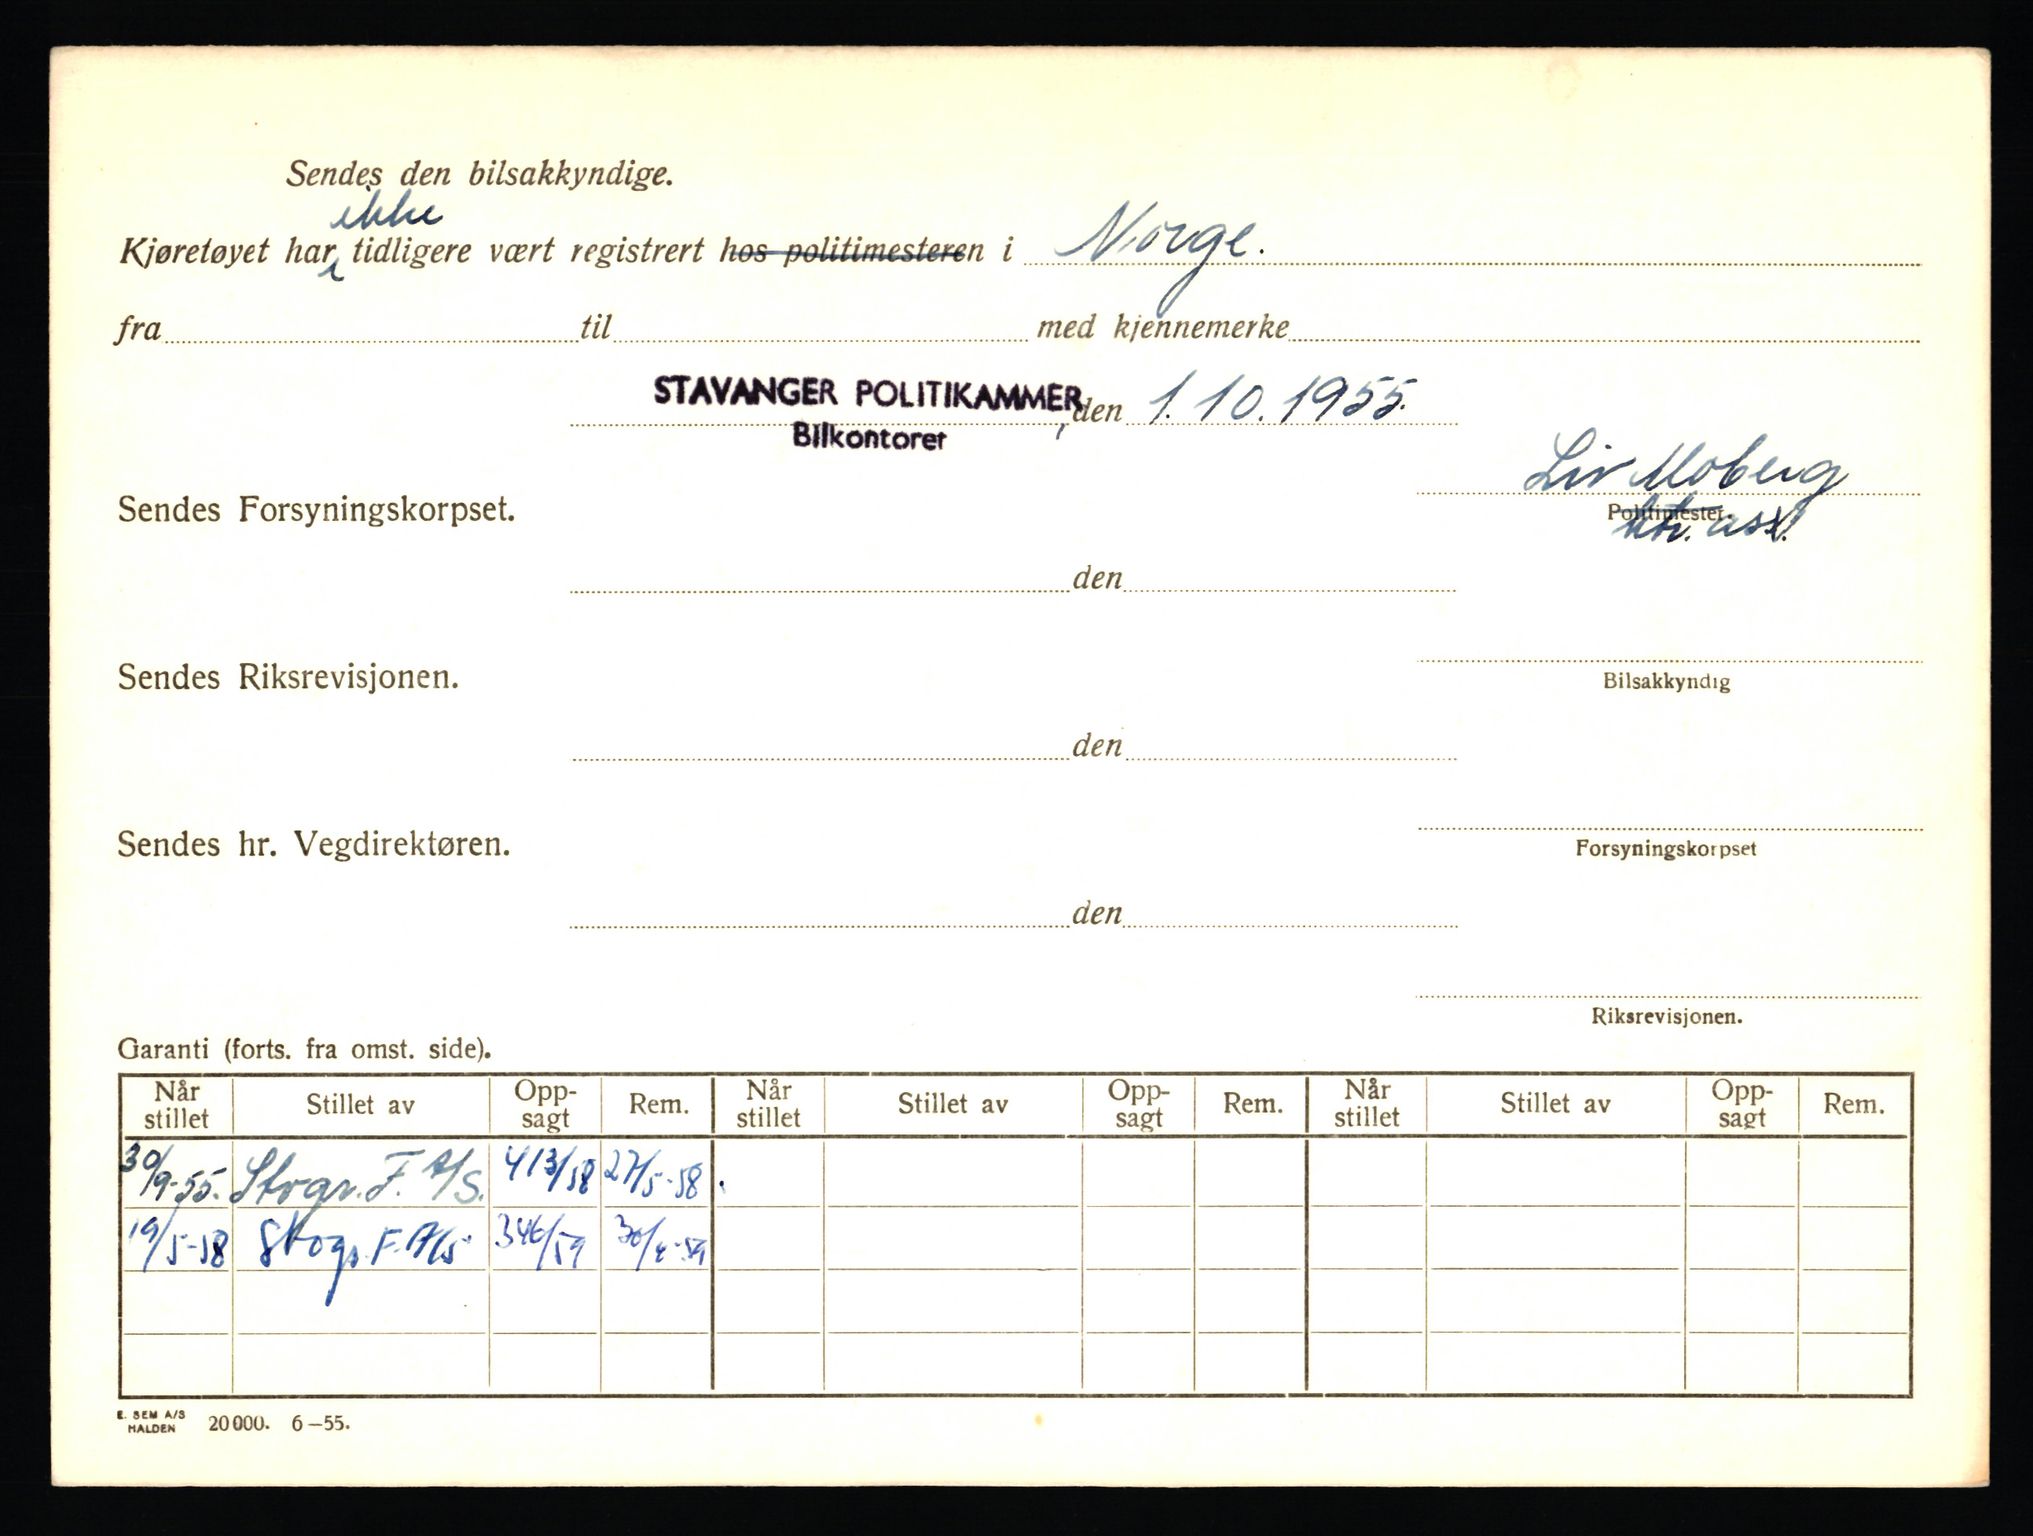 Sendes den bilsakkyndige.
ikke
Kjøretøyet har tidligere vært registrert hos politimesteren i Norge.
fra til med kjennemerke
STAVANGER POLITIKAMMER, den 1.10.1955.
Bilkontoret
Liv Moberg
Sendes Forsyningskorpset. Politimester.
ktr. ass.
den
Sendes Riksrevisjonen. Bilsakkyndig
den
Sendes hr. Vegdirektøren. Forsyningskorpset
den
Riksrevisjonen.
Garanti (forts. fra omst. side).
Når stillet Stillet av Opp-sagt Rem. Når stillet Stillet av Opp-sagt Rem. Når stillet Stillet av Opp-sagt Rem.
30/9-55. Stvgr. F. A/S. 413/58 27/5-58
19/5-58 F. A/S 346/59 30/4-59
E. SEM A/S
HALDEN 20000. 6-55.